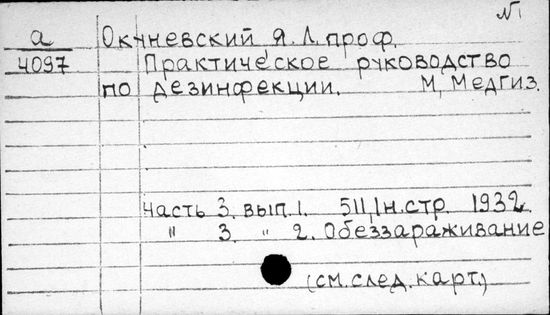 №1
а Окуневский, Я. Л. проф.
4097 Практическое руководство
по дезинфекции. М, Медгиз.
часть 3. вып. 1. 511, 1 н. стр. 1932.
" 3. " 2. Обеззараживание
(см. след. карт.)